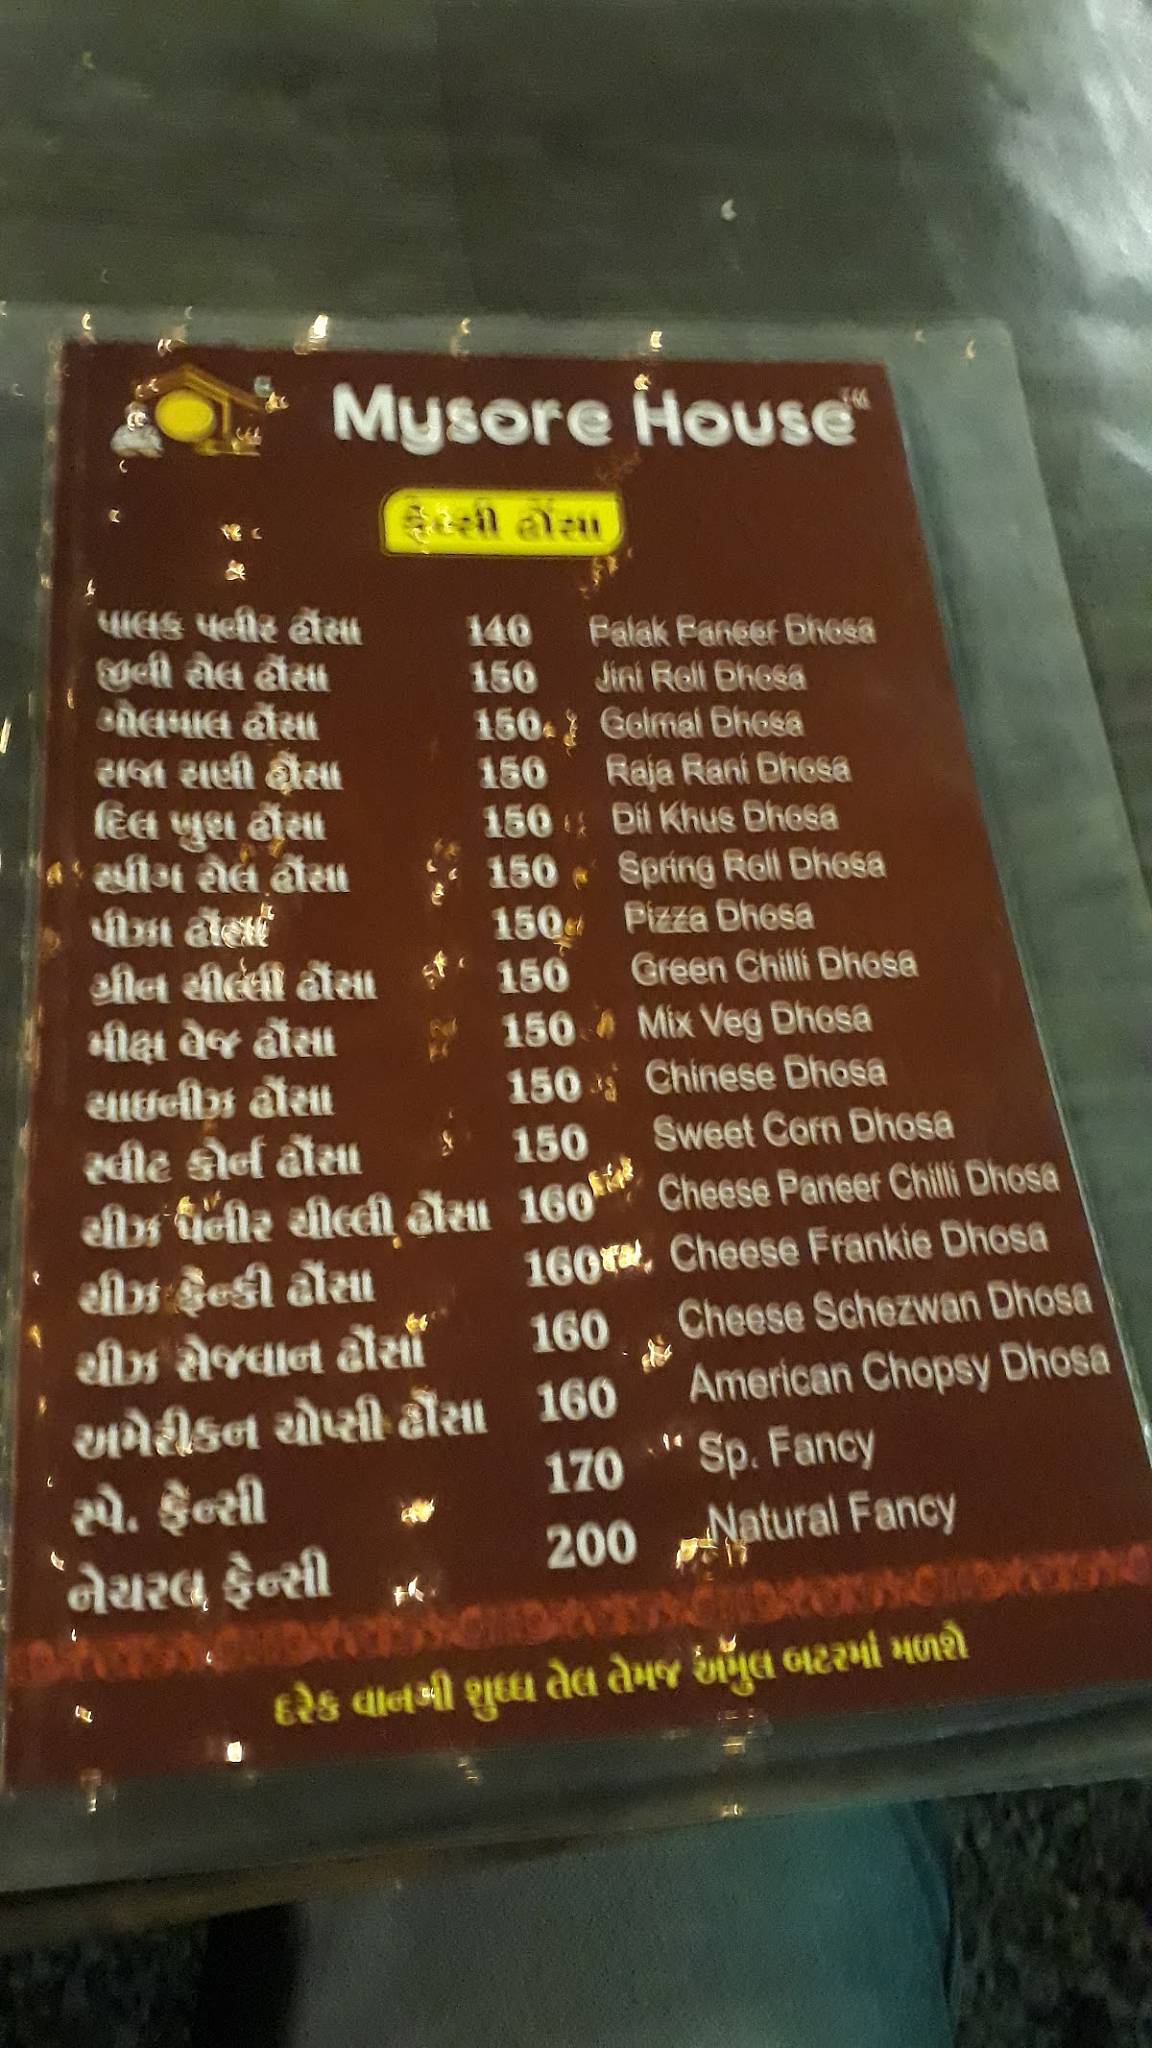 Mysore House TM
ફેન્સી ઢોંસા
પાલક પનીર ઢોંસા 140 Palak Paneer Dhosa
જીની રોલ ઢોંસા 150 Jini Roll Dhosa
ગોલમાલ ઢોંસા 150 Golmal Dhosa
રાજા રાણી ઢોંસા 150 Raja Rani Dhosa
દિલ ખુશ ઢોંસા 150 Dil Khus Dhosa
સ્પ્રીંગ રોલ ઢોંસા 150 Spring Roll Dhosa
પીઝા ઢોંસા 150 Pizza Dhosa
ગ્રીન ચીલ્લી ઢોંસા 150 Green Chilli Dhosa
મીક્ષ વેજ ઢોંસા 150 Mix Veg Dhosa
ચાઇનીઝ ઢોંસા 150 Chinese Dhosa
સ્વીટ કોર્ન ઢોંસા 150 Sweet Corn Dhosa
ચીઝ પનીર ચીલ્લી ઢોંસા 160 Cheese Paneer Chilli Dhosa
ચીઝ ફ્રેન્કી ઢોંસા 160 Cheese Frankie Dhosa
ચીઝ સેજવાન ઢોંસા 160 Cheese Schezwan Dhosa
અમેરીકન ચોપ્સી ઢોંસા 160 American Chopsy Dhosa
સ્પે. ફેન્સી 170 Sp. Fancy
નેચરલ ફેન્સી 200 Natural Fancy
દરેક વાનગી શુધ્ધ તેલ તેમજ અમુલ બટરમાં મળશે